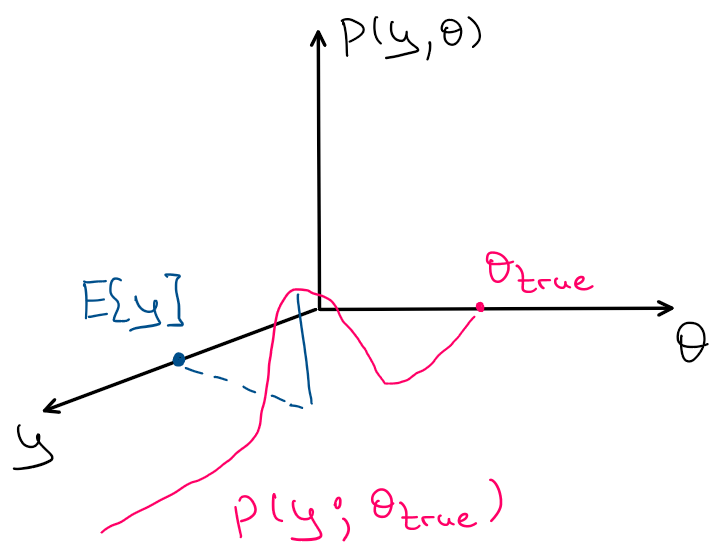 P(y,θ)
θtrue
E[y]
θ
y
P(y; θtrue)